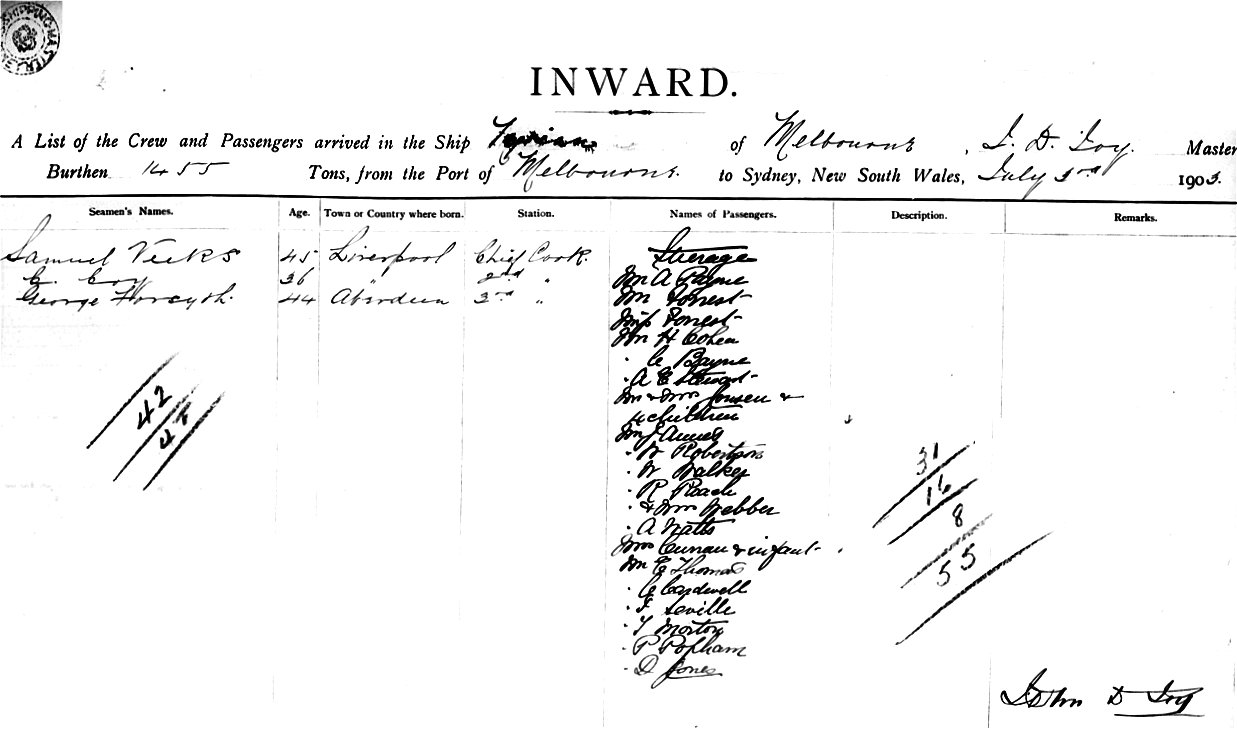 SHIPPING MASTER
INWARD.
A List of the Crew and Passengers arrived in the Ship Tyrian of Melbourne, J. D. Joy. Master
Burthen 1455 Tons, from the Port of Melbourne. to Sydney, New South Wales, July 3rd 1903.
Seamen's Names. Age. Town or Country where born. Station. Names of Passengers. Description. Remarks.
Samuel Veeks 45 Liverpool Chief Cook. Steerage
36 2nd "
Mr A Payne
George Forsyth. 44 Aberdeen 3rd "
Mr Forrest
Miss Forrest
Mr H Cohen
. C Bayne
. A E Stewart
Mr & Mrs Jensen &
4 children
Mr J
. W Robertson
. W Walker
. R Roach
. & Mrs Webber
. A Watts
Mrs & infant
Mr E Thomas
. C Cardwell
. F Saville
. T Morton
. P Popham
. D Jones
42
31
16
8
55
John D Joy